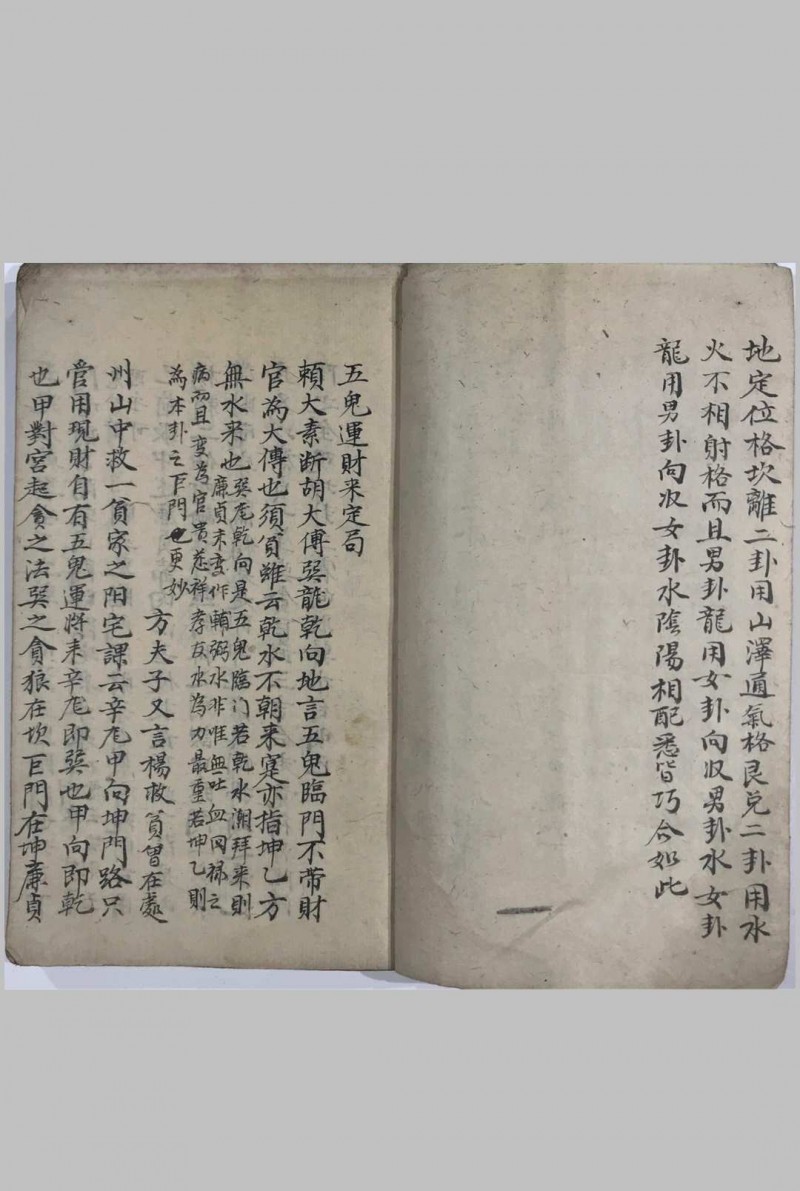 地定位格坎離二卦用山澤通氣格艮兌二卦用水
火不相射格而且男卦龍用女卦向収男卦水女卦
龍用男卦向収女卦水陰陽相配悉皆巧合如此
五鬼運財来定局
賴大素断胡大傅巽龍乾向地言五鬼臨門不帶財
官為大傅也須貧雖云乾水不朝来寔亦指坤乙方
無水来也
巽龙乾向是五鬼臨门若乾水潮拜来則
廉貞未变作輔弼水非惟無吐血回禄之
病而且变為官貴慈祥孝友水為力最重若坤乙則
為本卦之巨門也更妙
方夫子又言楊救貧曾在處
州山中救一貧家之阳宅課云辛龙甲向坤門路只
管用現財自有五鬼運將来辛龙即巽也甲向即乾
也甲對宮起貪之法巽之貪狼在坎巨門在坤廉貞